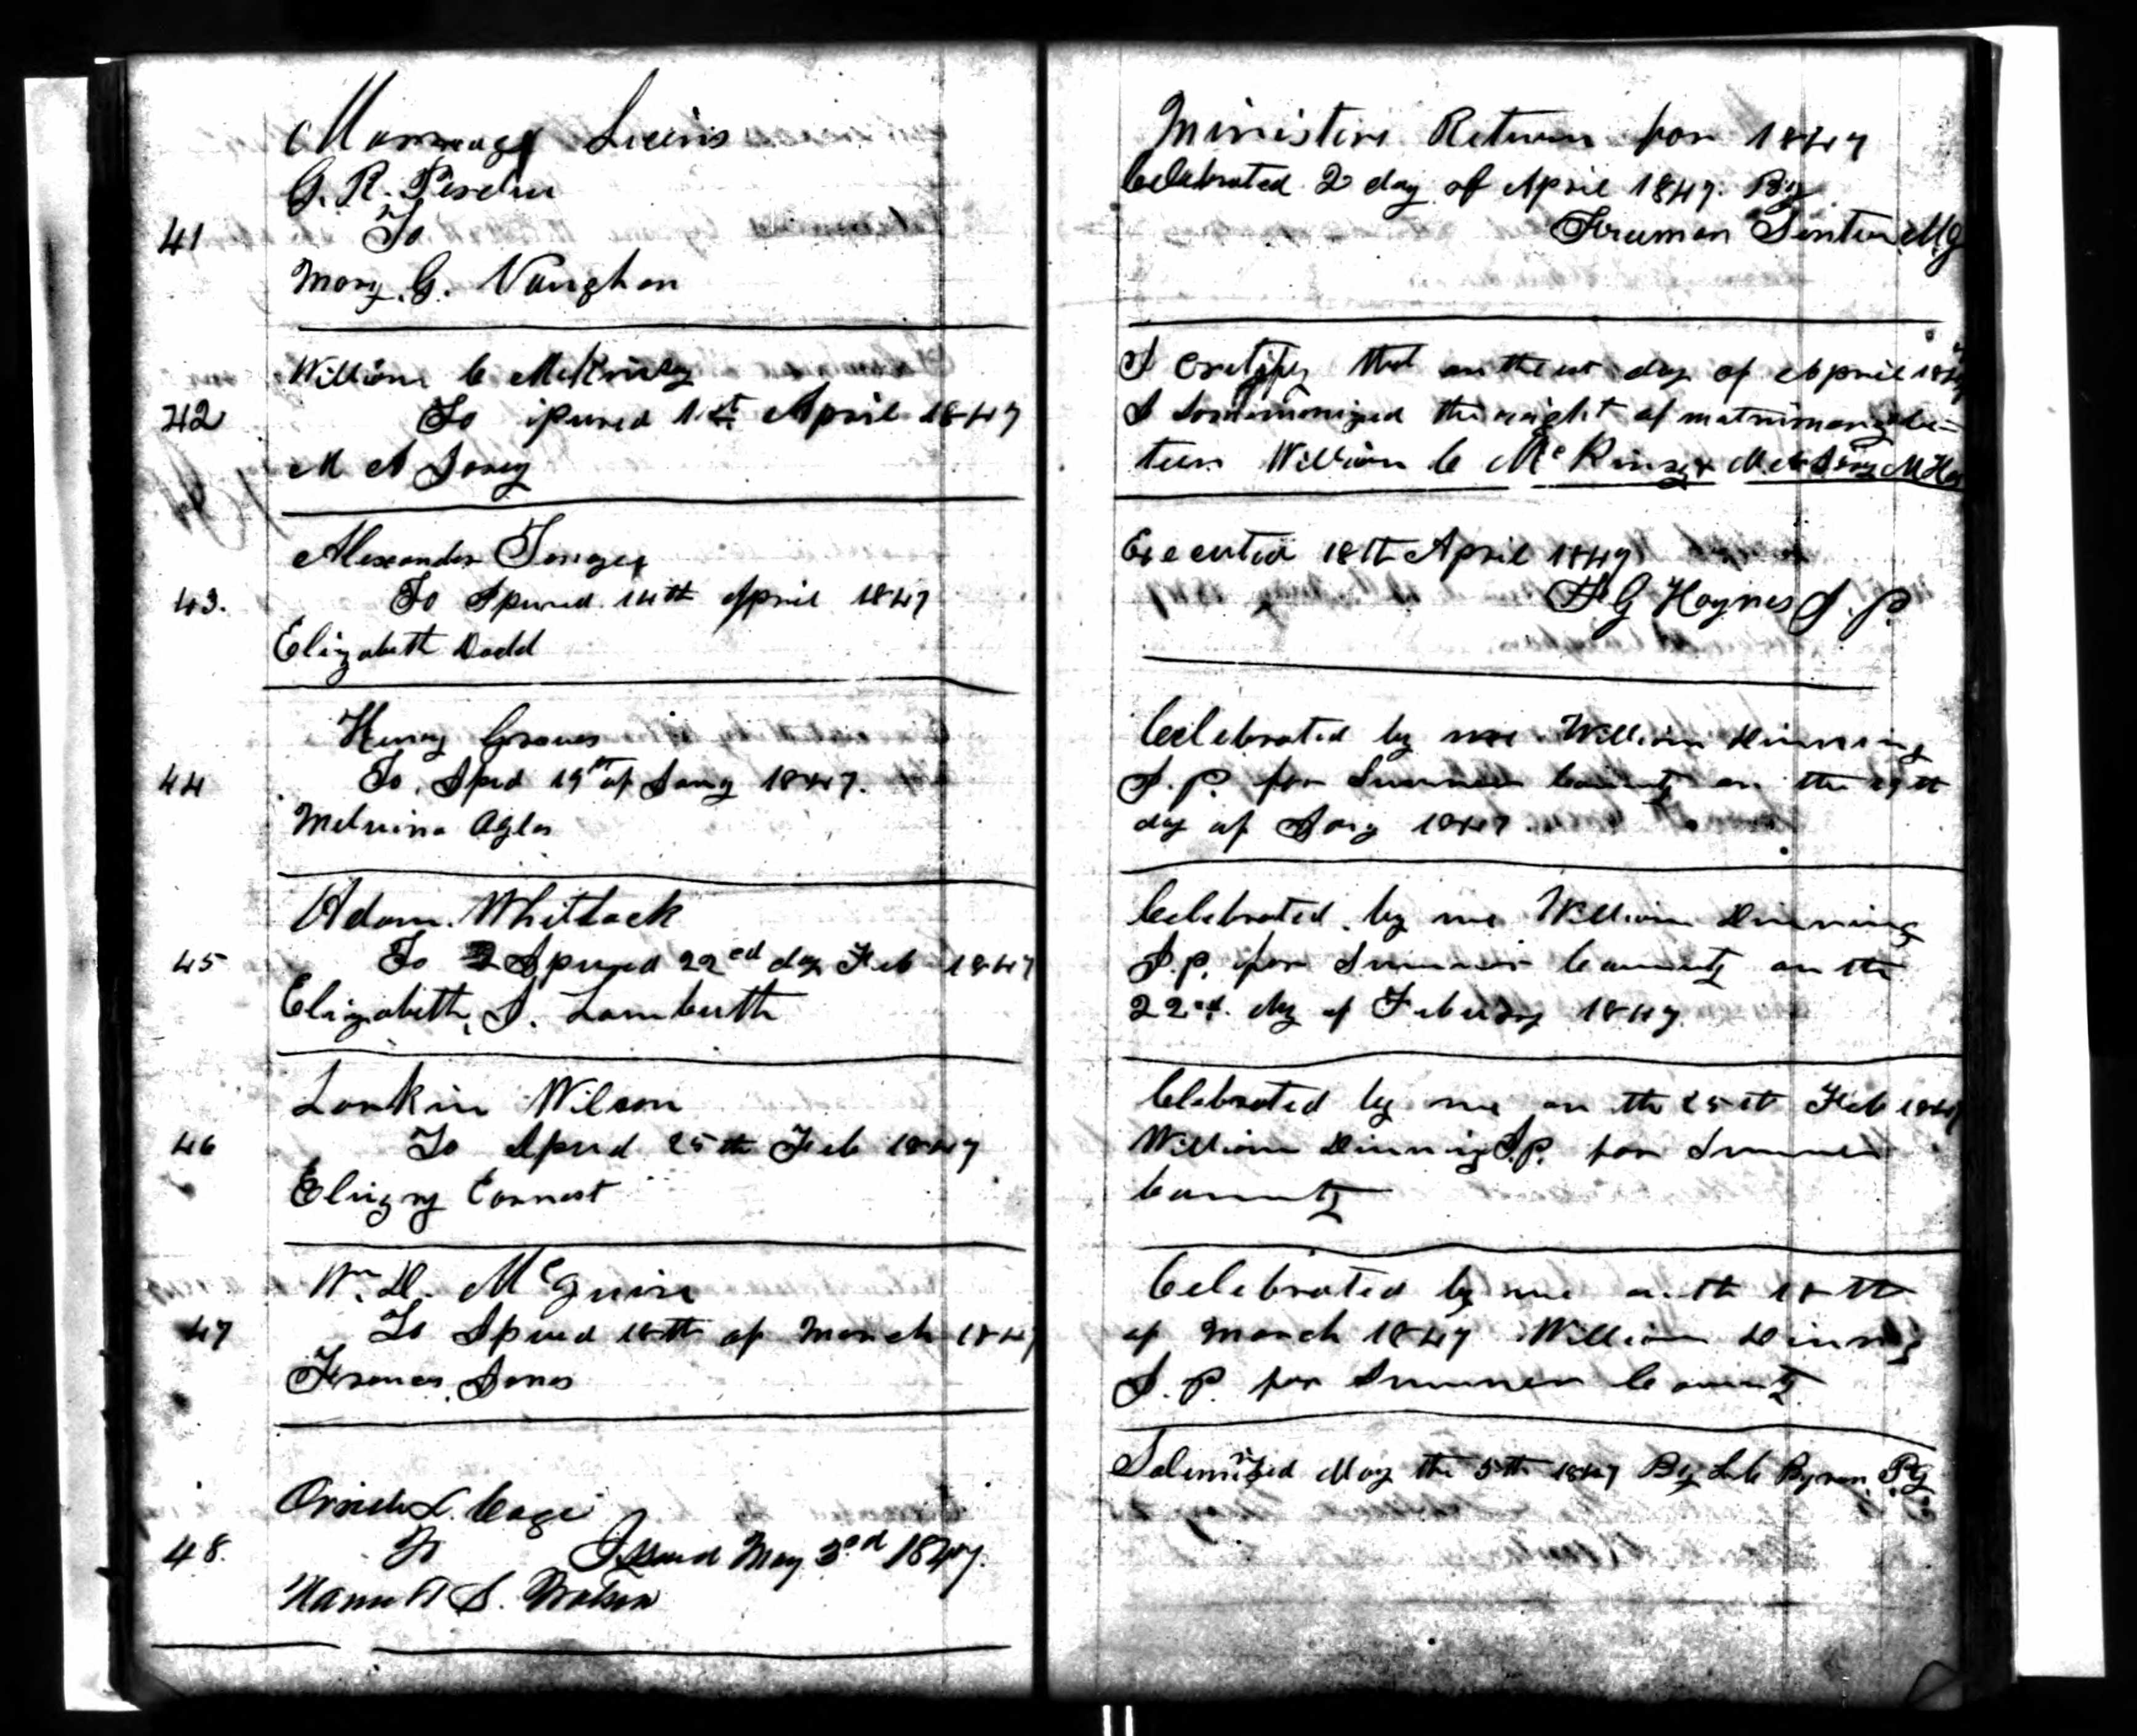 Marriage Licins
G. R.
41
To
Mary. G. Vaughan
William C McKinley
42
To ipured 1st April 1847
M A
Alexander
43.
To Ipured. 14th April 1847
Elizabeth Dodd
Henry Groves
44
To, Ipud 19th of Jany 1847.
Melvina
Adam. Whitlock
45
To Ipured 22ed day Feb 1847
Elizabeth, J. Lambuth
Larkin Wilson
46
To Ipud 25th Feb 1847
Earnest
Wm. H. McGuire
47
To Ipued 18th of March 1847
Frances. Jones
L. Cage
48.
To Issued May 3rd 1847.
S.
Ministers Return for 1847
Celebrated 2 day of April 1847. By
MG
I certify that on the 1st day of April 1847
I the right of matrimony be-
teen William C McKinzey
Executed 18th April 1847
G Haynes J. P.
Celebrated by me William Dinning
J. P. for Sumner County on the 19th
day of Jany 1847
Celebrated. by me William Dinning
J. P. for Sumner County on the
22ed. day of 1847.
Celebrated by me on the 25th Feb 1847
William Dinning J. P. for Sumner
County
Celebrated by me on th 18th
of March 1847 William Dinning
J. P. for Sumner County
May the 5th 1847 By